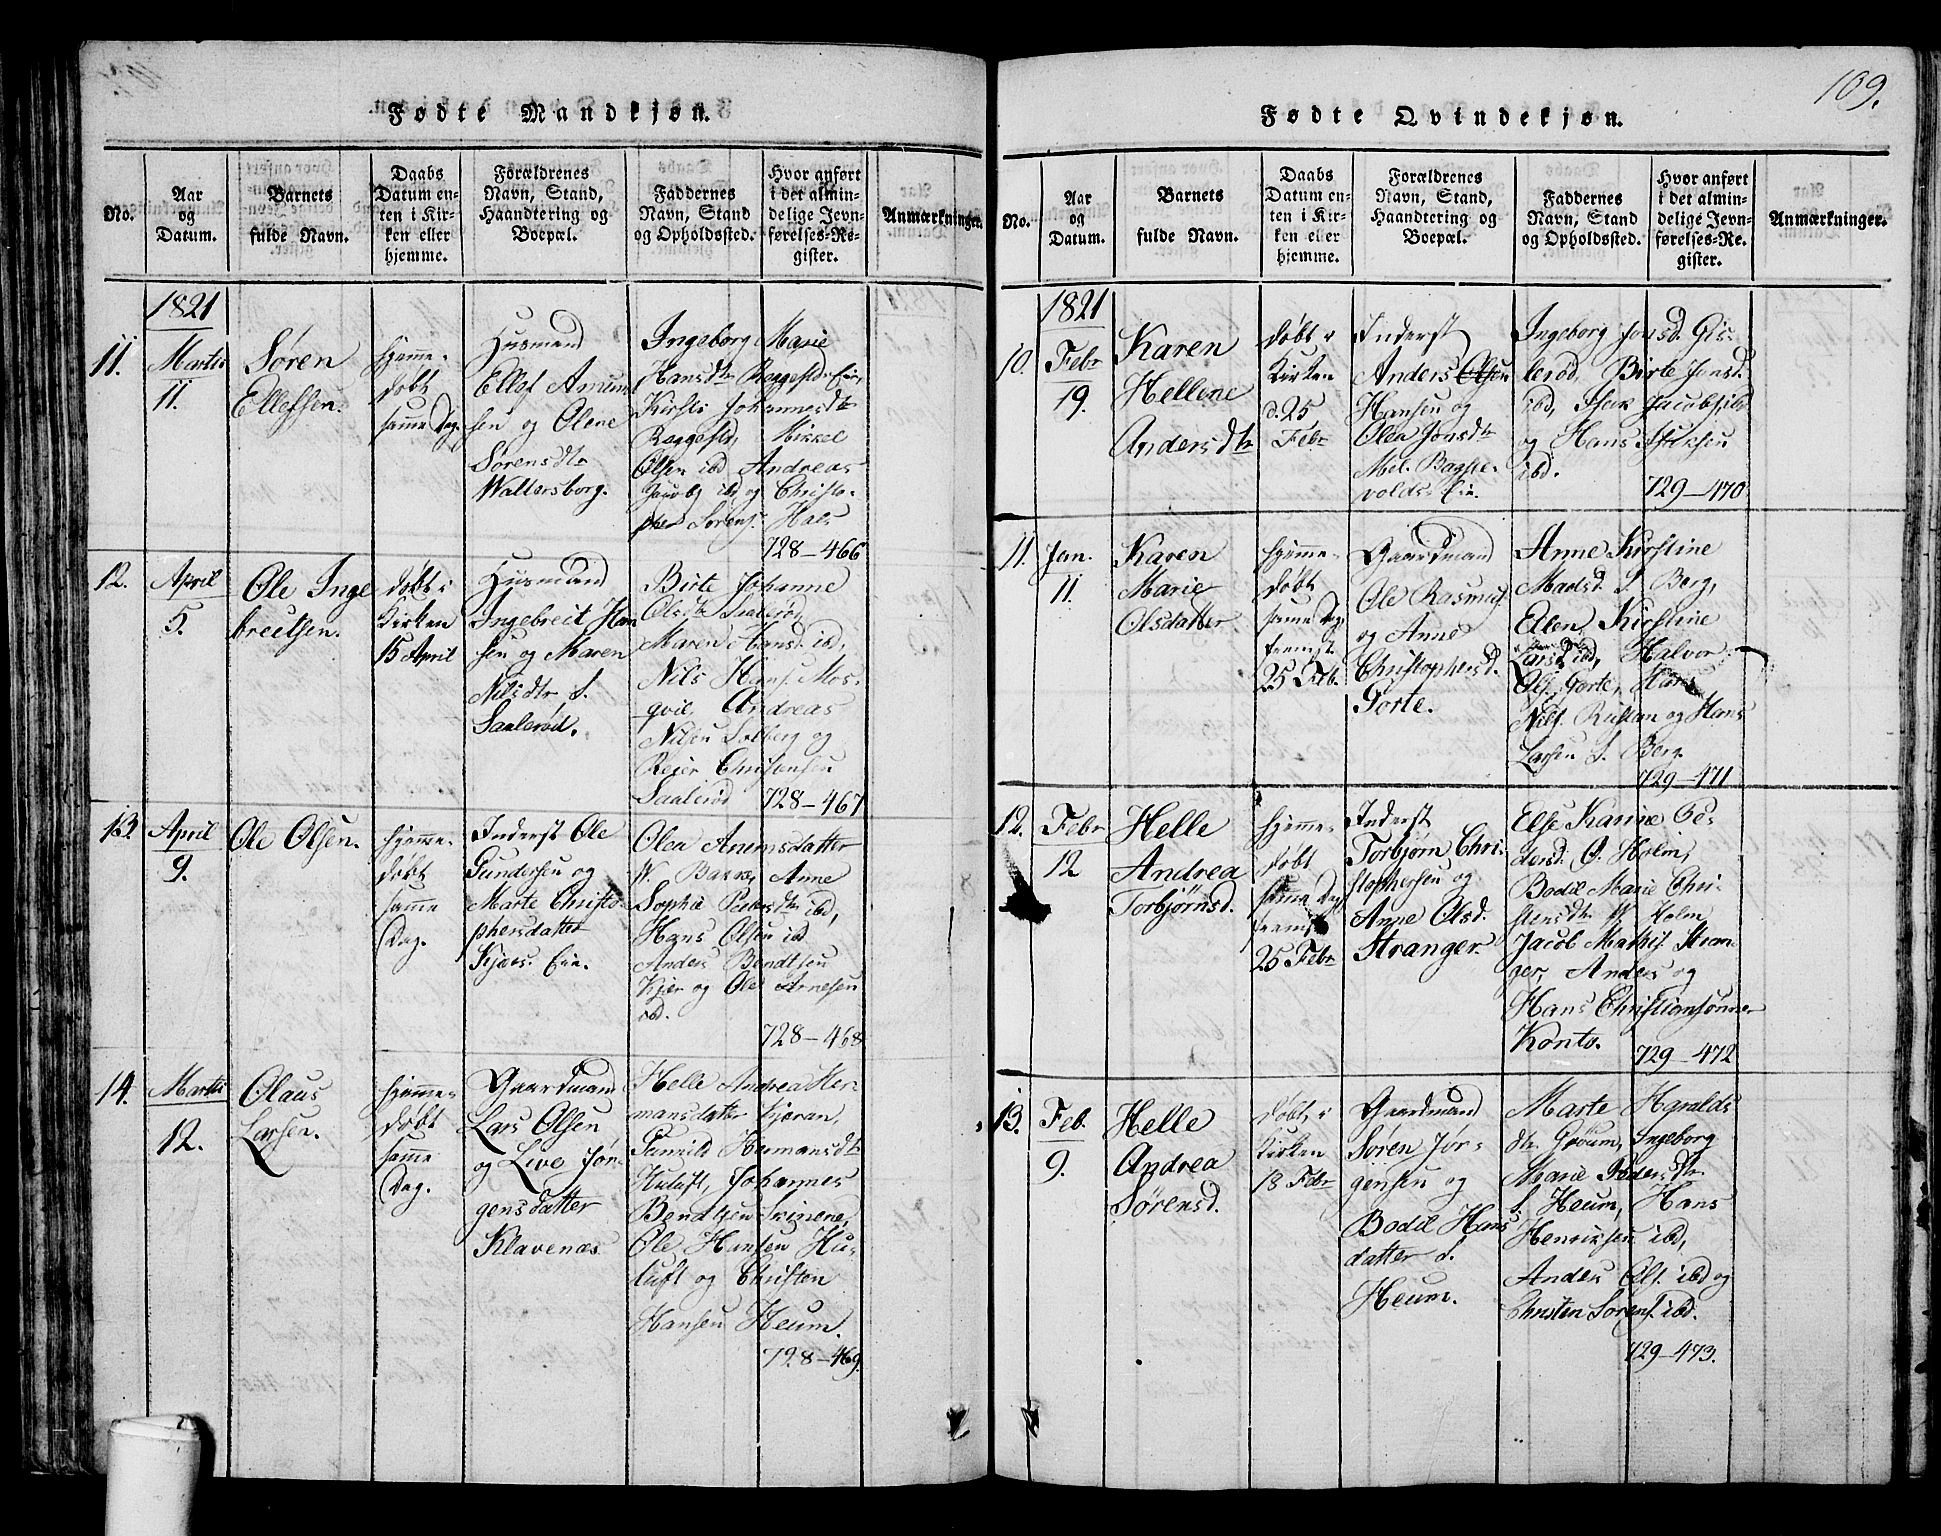 109.
Fødte Mandkjøn.
No.
Aar
og
Datum.
Barnets
fulde Navn.
Daabs
Datum en-
ten i Kir-
ken eller
hjemme.
Forældrenes
Navn, Stand,
Haandtering og
Boepæl.
Faddernes
Navn, Stand
og Opholdssted.
Hvor anført
i det almin-
delige Jevn-
førelses-Re-
gister.
Anmærkninger.
1821
11.
Martii
11.
Søren
Ellefsen.
hjemme-
døbt
samme Dag.
Husmand
Ellef Amun
sen og Olene
Sørensdtr
Waltersborg.
Ingeborg Marie
Hansdtr Raggestd Eie,
Kirsti Johannesdtr
Raggestd, Mikkel
Olsen ibd Andreas
Jacobs ibd, og Christo-
pher Sørens. Hals
728-466
12.
April
5.
Ole Inge
breitsen.
døbt i
Kirken
15 April
Husmand
Ingebreit Han
sen og Maren
Nilsdtr S.
Saalerød.
Birte Johanne
Olsdtr Saalerød,
Maren Hansd. ibd,
Nils Hans. Mos-
qvil Andreas
Nilsen Solberg og
Reier Christensen
Saalerød 728-467
13.
April
9.
Ole Olsen.
hjemme-
døbt
samme
Dag.
Inderst Ole
Gundersen og
Marte Christo
phersdatter
Kjærs Eie.
Olea Anemsdatter
W. Bakke, Anne
Sophie Pedersdtr ibd,
Hans Olsen ibd
Anders Bendtsen
Kjær og Ole Arnesen
ibd.
728-468
14.
Martii
12.
Olaus
Larsen.
hjemme-
døbt
samme
Dag.
Gaardmand
Lars Olsen
og Live Jør-
gensdatter
Klavenæs
Helle Andrea Her-
mansdatter Kjæran,
Gunild Hermansdtr
Huluft, Johannes
Bendtsen
Ole Hansen Hu-
luft og Christen
Hansen Heum.
728-469.
Fødte Qvindekjøn.
No.
Aar
og
Datum.
Barnets
fulde Navn.
Daabs
Datum en-
ten i Kir-
ken eller
hjemme.
Forældrenes
Navn, Stand,
Haandtering og
Boepæl.
Faddernes
Navn, Stand
og Opholdssted.
Hvor anført
i det almin-
delige Jevn-
førelses-Re-
gister.
Anmærkninger.
1821
10.
Febr
19.
Karen
Hellene
Andersdtr
døbt i
Kirken
d. 25
Febr
Inderst
Anders Olsen
Hansen og
Olea Jonsdtr
Mel. Bagste-
volds Eie.
Ingeborg Jonsd. Gis-
lerød, Birte Jonsd.
ibd, Isak Jacobs. ibd
og Hans Isaksen
ibd.
729-470
11.
Jan.
11.
Karen
Marie
Olsdatter
hjemme-
døbt
samme Dag
fremst.
25 Feb.
Gaardmand
Ole Rasmus.
og Anne
Christophersd.
Gorte.
Anne Kirstine
Madsd. S. Berg,
Ellen Kirstine
Larsd ibd, Halvor
Ols. Gorte, Hans
Nils. og Hans
Larsen S. Berg.
729-471
12.
Febr
12
Helle
Andrea
Torbjørnsd.
hjemme-
døbt
samme Dag
fremst
25 Febr
Inderst
Torbjørn Chri-
stophersen og
Anne Olsd.
Stranger.
Else Karine Pe-
dersd. Ø. Holm,
Bodil Marie Chri-
stensdtr W. Holm
Jacob Mathis. Stran-
ger, Anders og
Hans Christiansønner
Konto. 729-472
13.
Feb.
9.
Helle
Andrea
Sørensd.
døbt i
Kirken
18 Febr
Gaardmand
Søren Jør-
gensen og
Bodil Hans
datter S.
Heum.
Marte Haralds
dtr Grøum, Ingeborg
Marie Pedersdtr
S. Heum, Hans
Henriksen ibd,
Anders Ols. ibd og
Christen Sørens. ibd.
729-473.